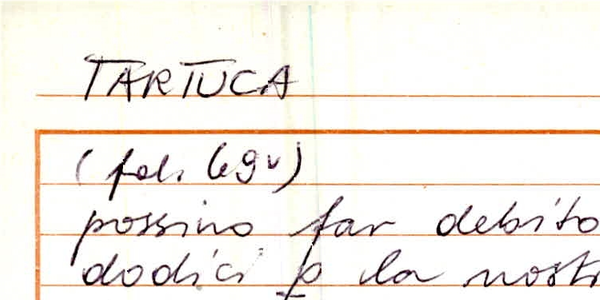 TARTUCA
(fol. 69v)
possino far debito
dodici p la nostr